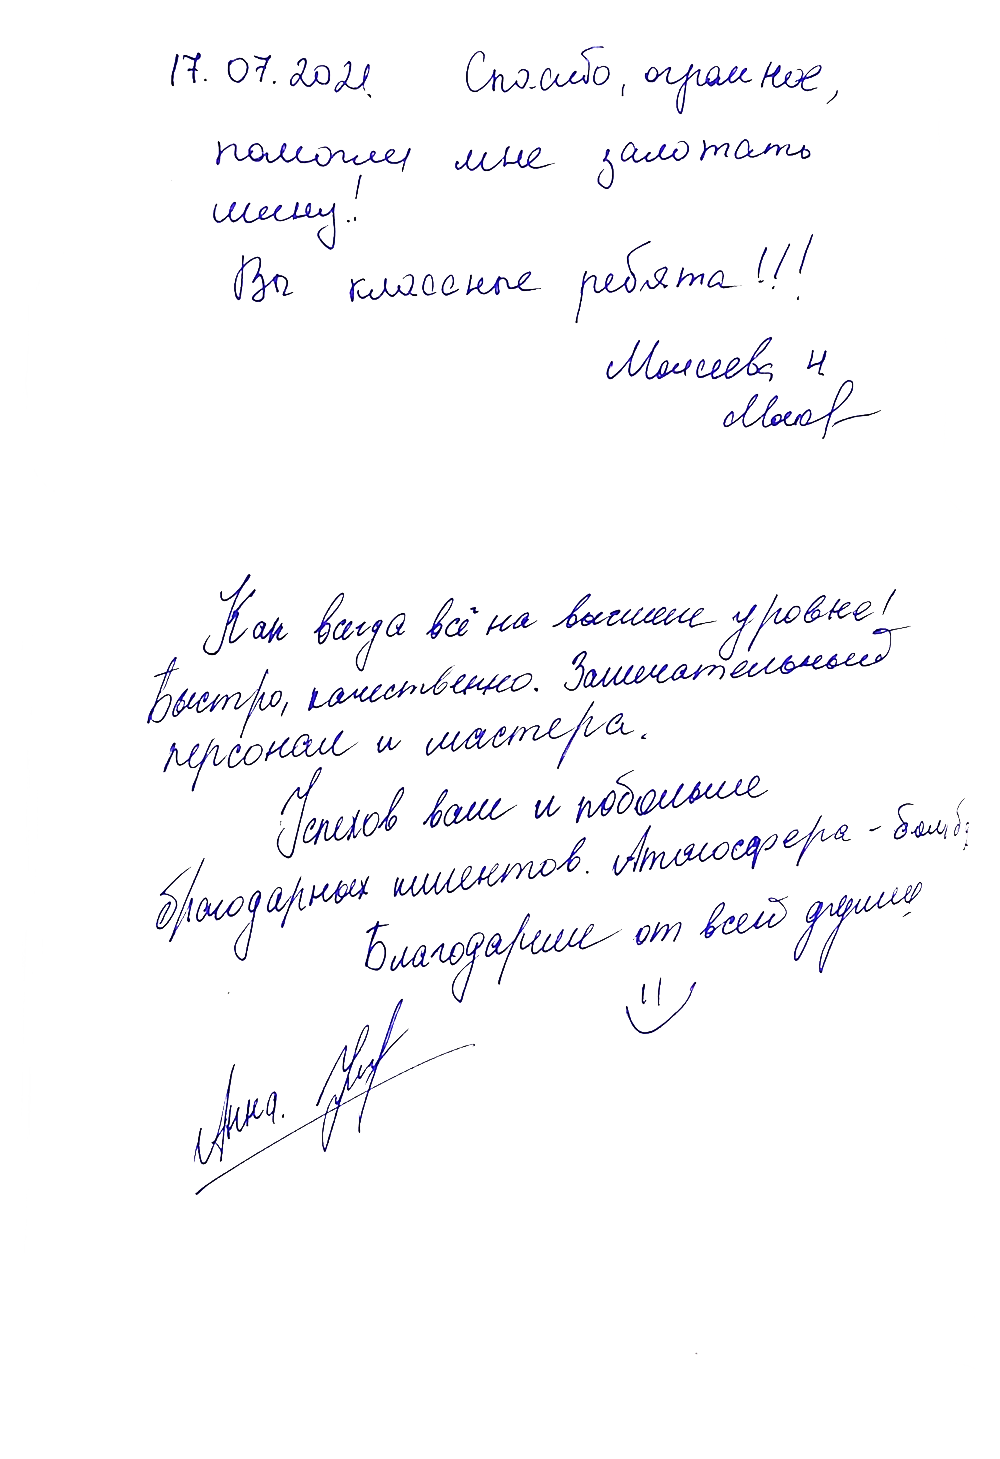 17.07.2021 Спасибо, огромное,
помогли мне залотать
шину!
Вы классные ребята!!!
Моисеева Н
Как всегда всё на высшем уровне!
Быстро, качественно. Замечательный
персонал и мастера.
Успехов вам и побольше
благодарных клиентов. Атмосфера - бомба
Благодарим от всей души
Анна.